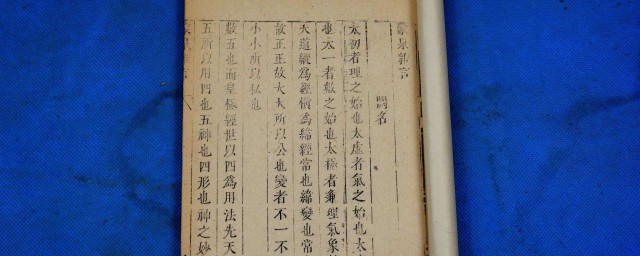 象言
名
太初者理之始也太虛者氣之始也太
也太一者數之始也太極者兼理氣象
天道縱為經橫為緯經常也緯變也常
故正正故大大所以公也變者不一不
小小所以私也
數五也而皇極經世以四為用法先天
五所以用四也五神也四形也神之妙